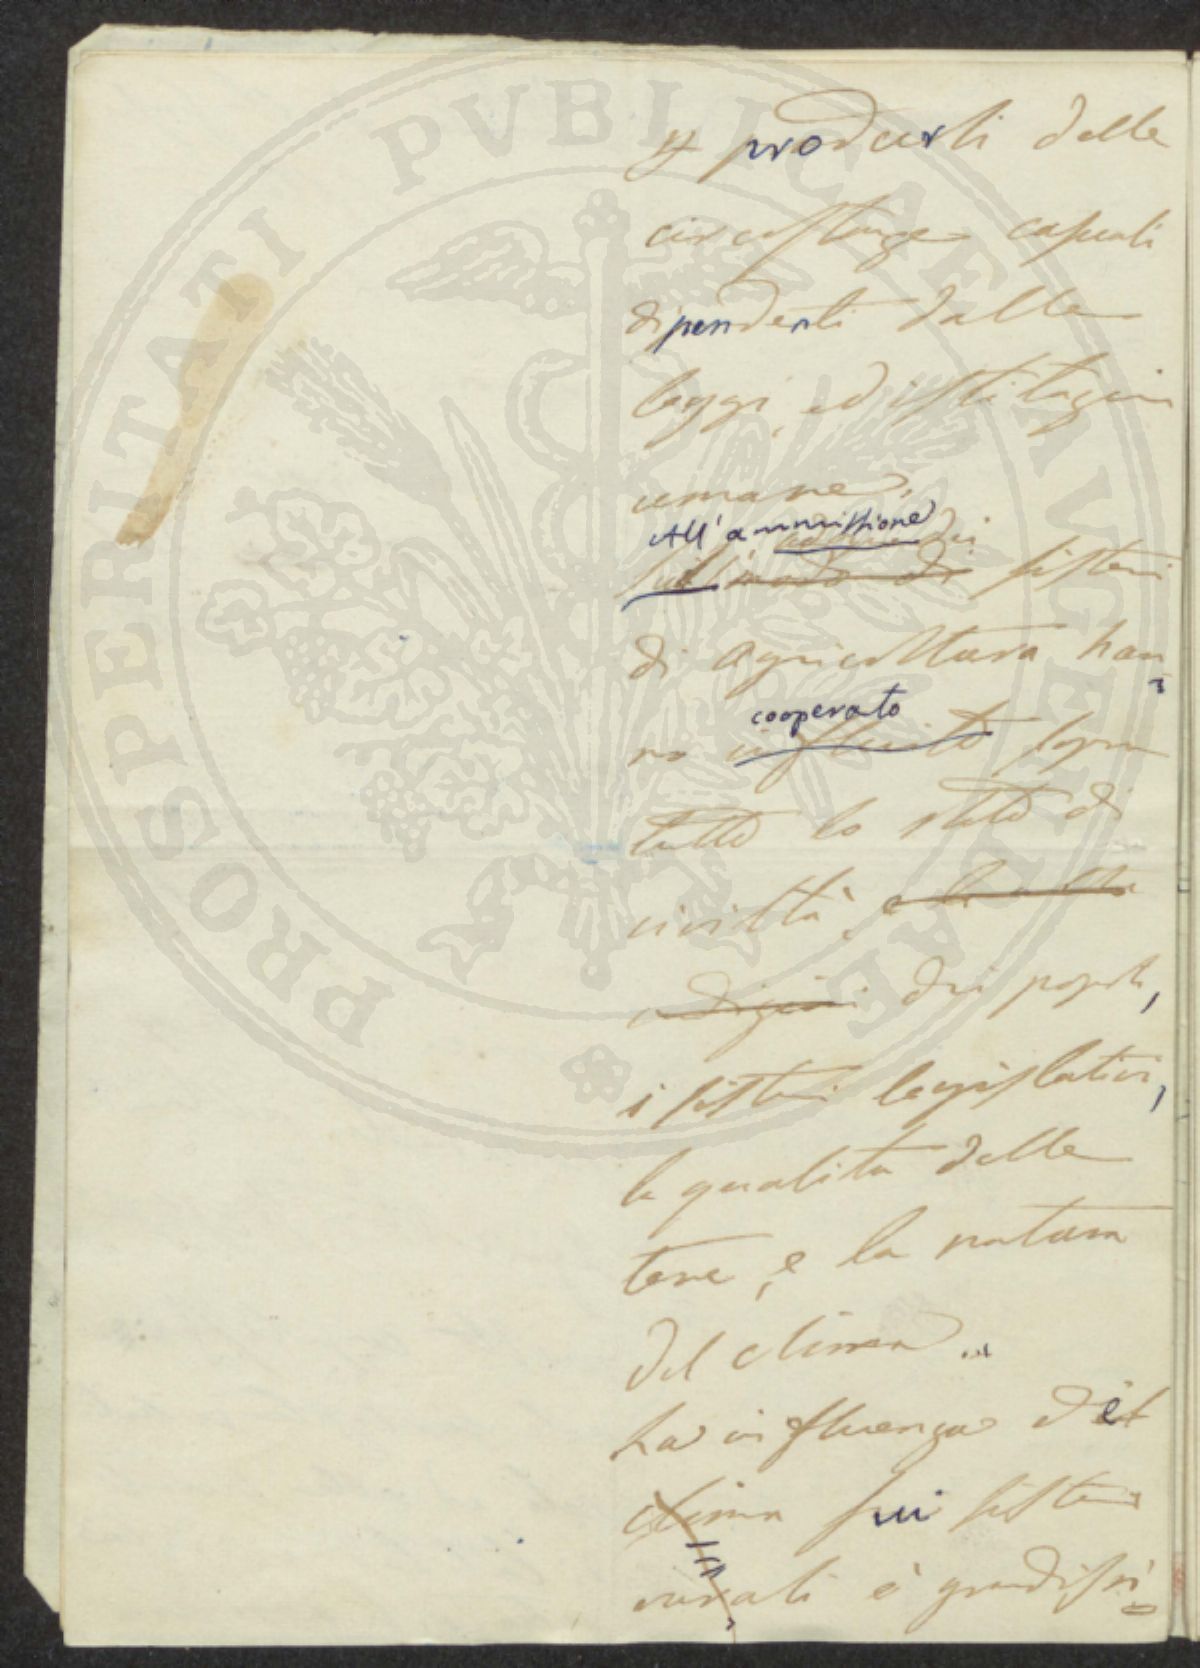 PROSPERITATI PVBLICAE AVGENDAE
produrli delle
circostanze casuali
dipendenti dalle
leggi, ed istituzioni
umane.
All'ammissione dei
sul modo di sistemi
di agricoltura han
cooperato
no influito sopra
tutto lo stato di
civiltà, e la
dei popoli,
i sistemi legislativi,
la qualita delle
terre, e la natura
del clima.
La influenza del
clima sui sistemi
rurali è grandissi